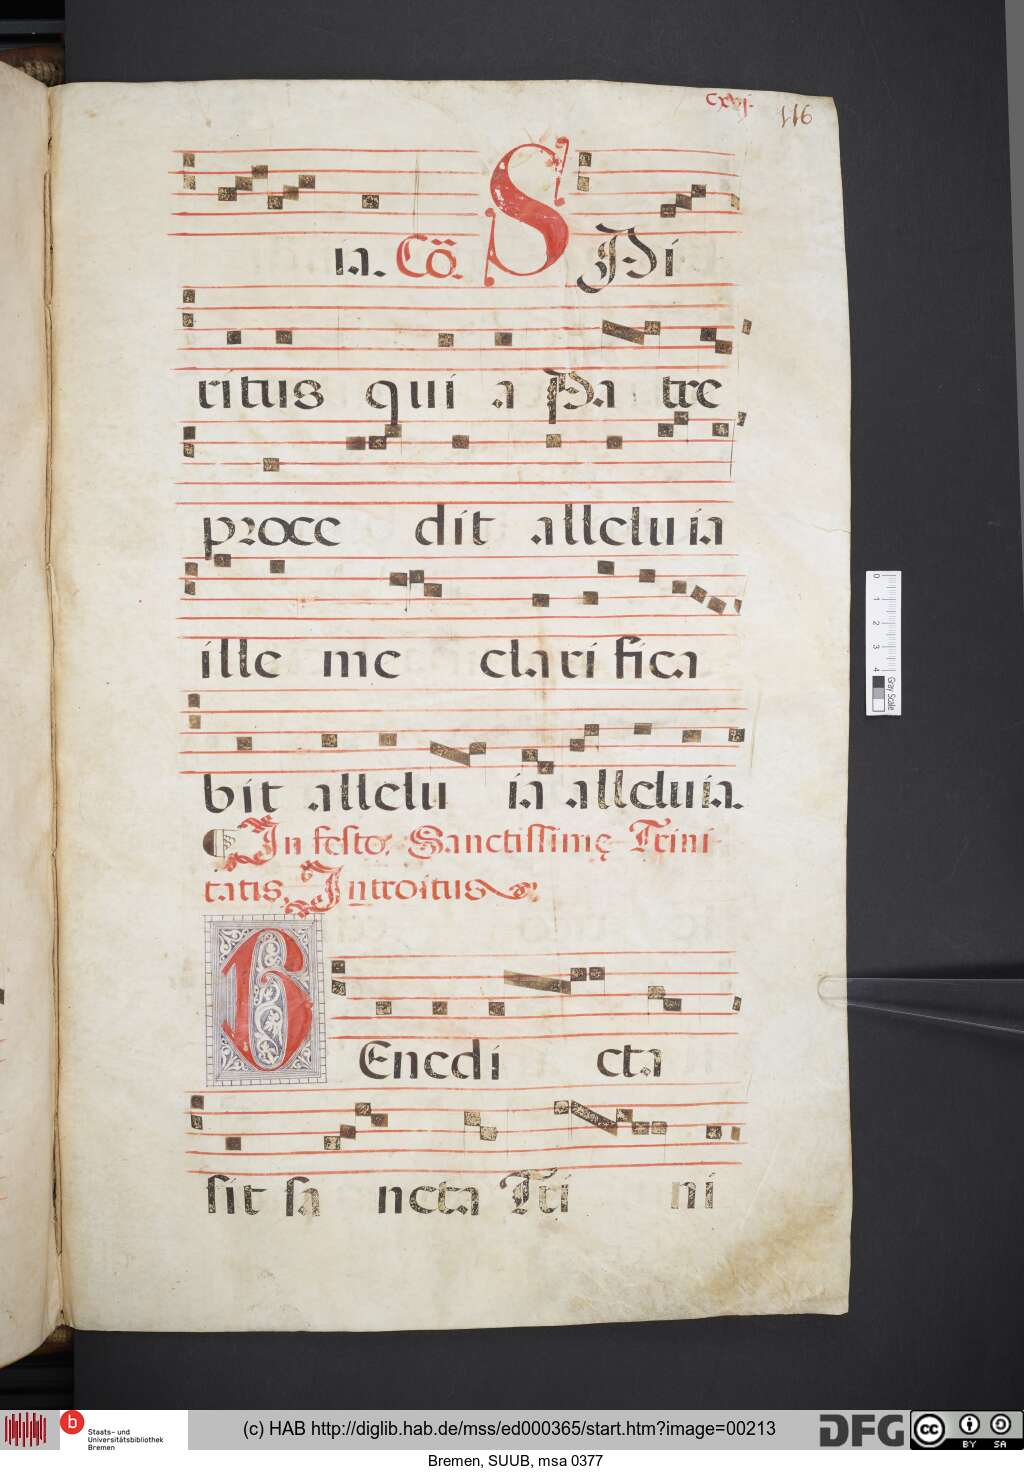 cxvj.
116
ia. Cō. SPi
ritus qui a Pa tre
proce dit alleluia
ille me clari fica
bit allelu ia alleluia.
In festo Sanctissimę Trini
tatis. Introitus
BEnedi cta
sit sa ncta Tri ni
0 1 2 3 4
Gray Scale
b Staats- und
Universitätsbibliothek
Bremen
(c) HAB http://diglib.hab.de/mss/ed000365/start.htm?image=00213
DFG
cc BY SA
Bremen, SUUB, msa 0377